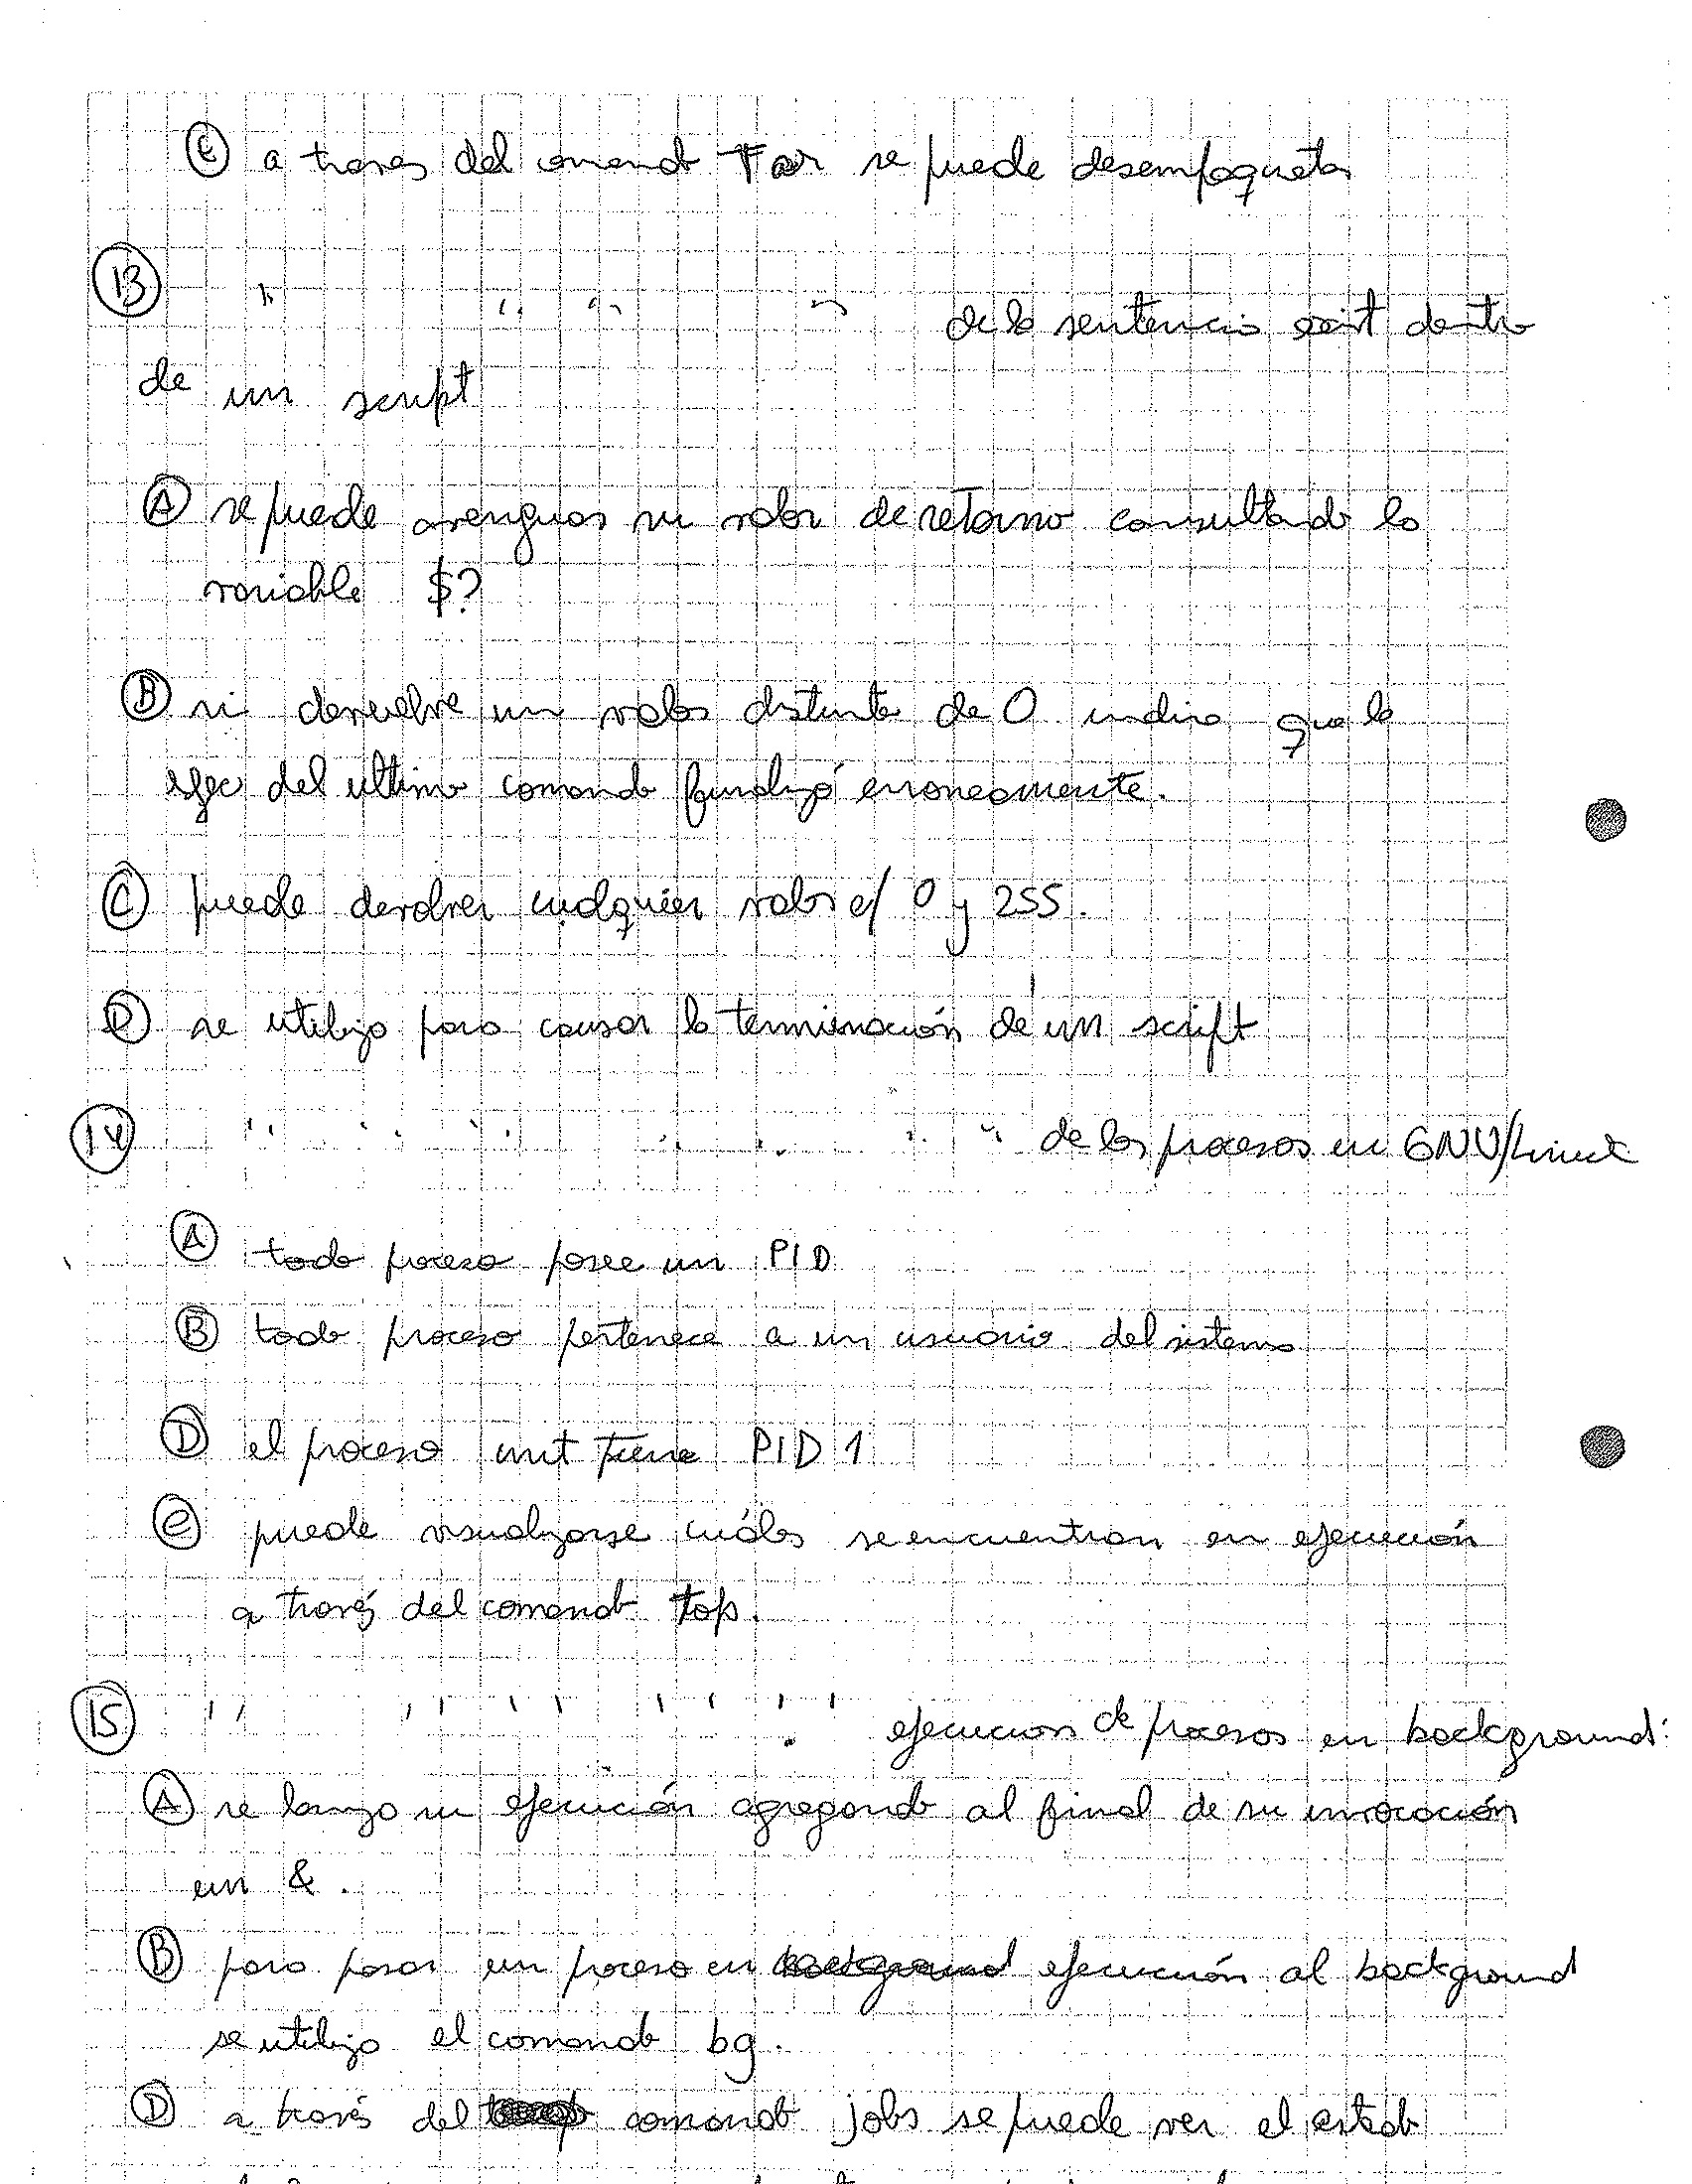 Ⓔ a traves del comando Tar se puede desempaquetar
⑬ " " " " de la sentencia exit dentro
de un script
Ⓐ se puede averiguar su valor de retorno consultando la
variable $?
Ⓑ si devuelve un valor distinto de 0 indica que la
ejec del ultimo comando finalizó erroneamente.
Ⓒ puede devolver cualquier valor e/ 0 y 255.
Ⓓ se utiliza para causar la terminación de un script
⑭ " " " " " " " de los procesos en GNU/Linux
Ⓐ todo proceso posee un PID
Ⓑ todo proceso pertenece a un usuario del sistema
Ⓓ el proceso init tiene PID 1
Ⓔ puede visualizarse cuáles se encuentran en ejecución
a través del comando top.
⑮ " " " " " ejecucion de procesos en background:
Ⓐ se lanza su ejecución agregando al final de su invocación
un &.
Ⓑ para pasar un proceso en background ejecución al background
se utiliza el comando bg.
Ⓓ a través del comando jobs se puede ver el estado